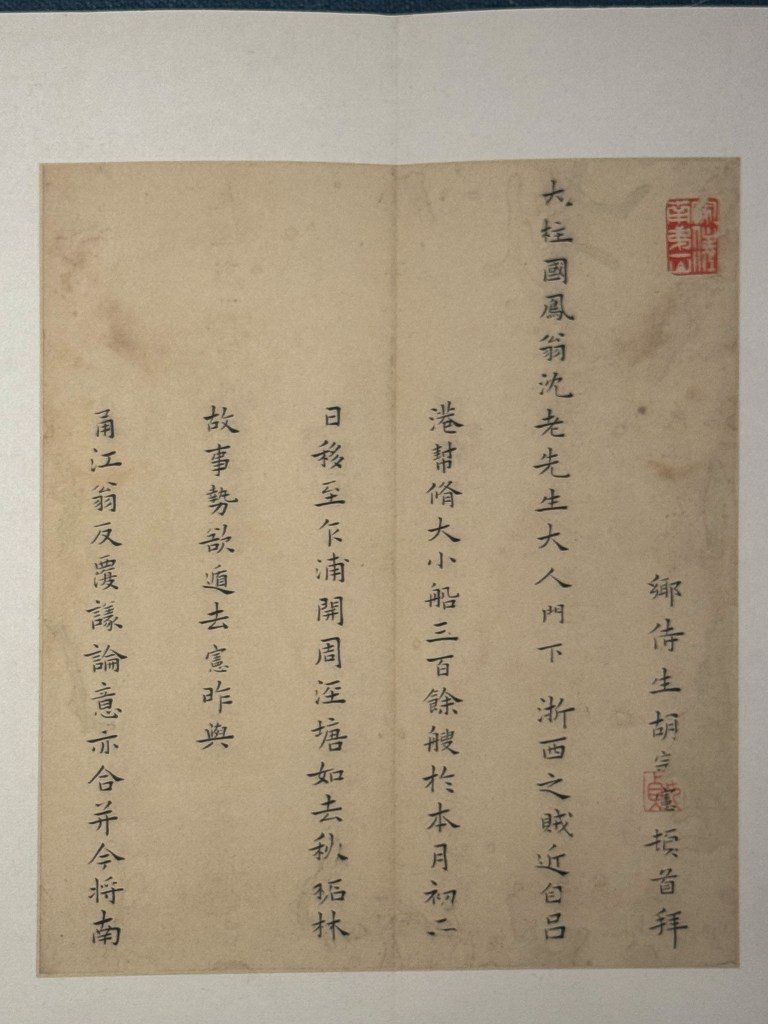 鄉侍生胡宗憲頓首拜
大柱國鳳翁沈老先生大人門下 浙西之賊近自呂
港幫脩大小船三百餘艘於本月初二
日移至乍浦開周涇塘如去秋柘林
故事勢欲遁去憲昨與
甬江翁反覆議論意亦合并今將南